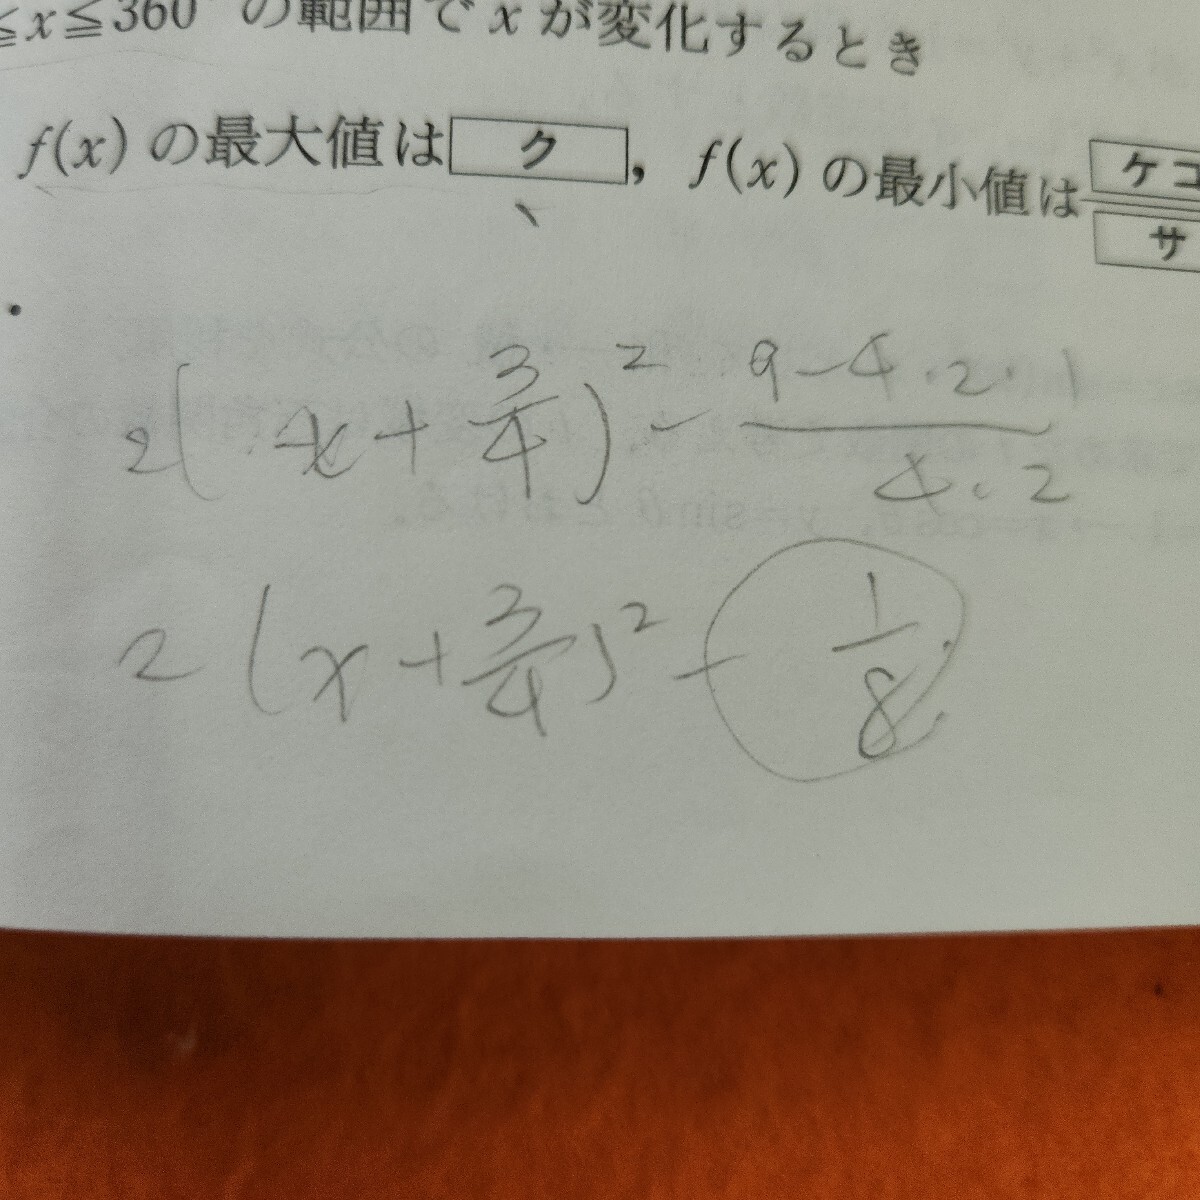 ≦x≦360°の範囲でxが変化するとき
f(x)の最大値は ク , f(x)の最小値は ケコ/サ
2(x+3/4)² - (9-4・2・1)/(4・2)
2(x+3/4)² - 1/8